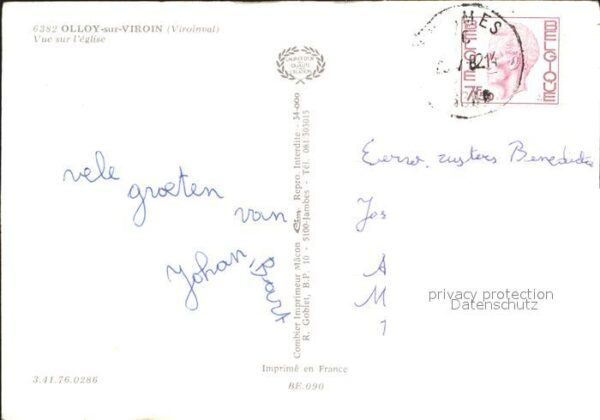 6382 OLLOY-sur-VIROIN (Viroinval)
Vue sur l'église
BELGIQUE
BELGIE
vele
groeten
van
Johan, Bart
Combier Imprimeur Mâcon Repro. Interdite - 54-000
R. Goblet, B.P. 10 - 5100-Jambes - Tél. 081 303015
Eerw. zusters
Jos
A
M
1
privacy protection
Datenschutz
Imprimé en France
BE.090
3.41.76.0286